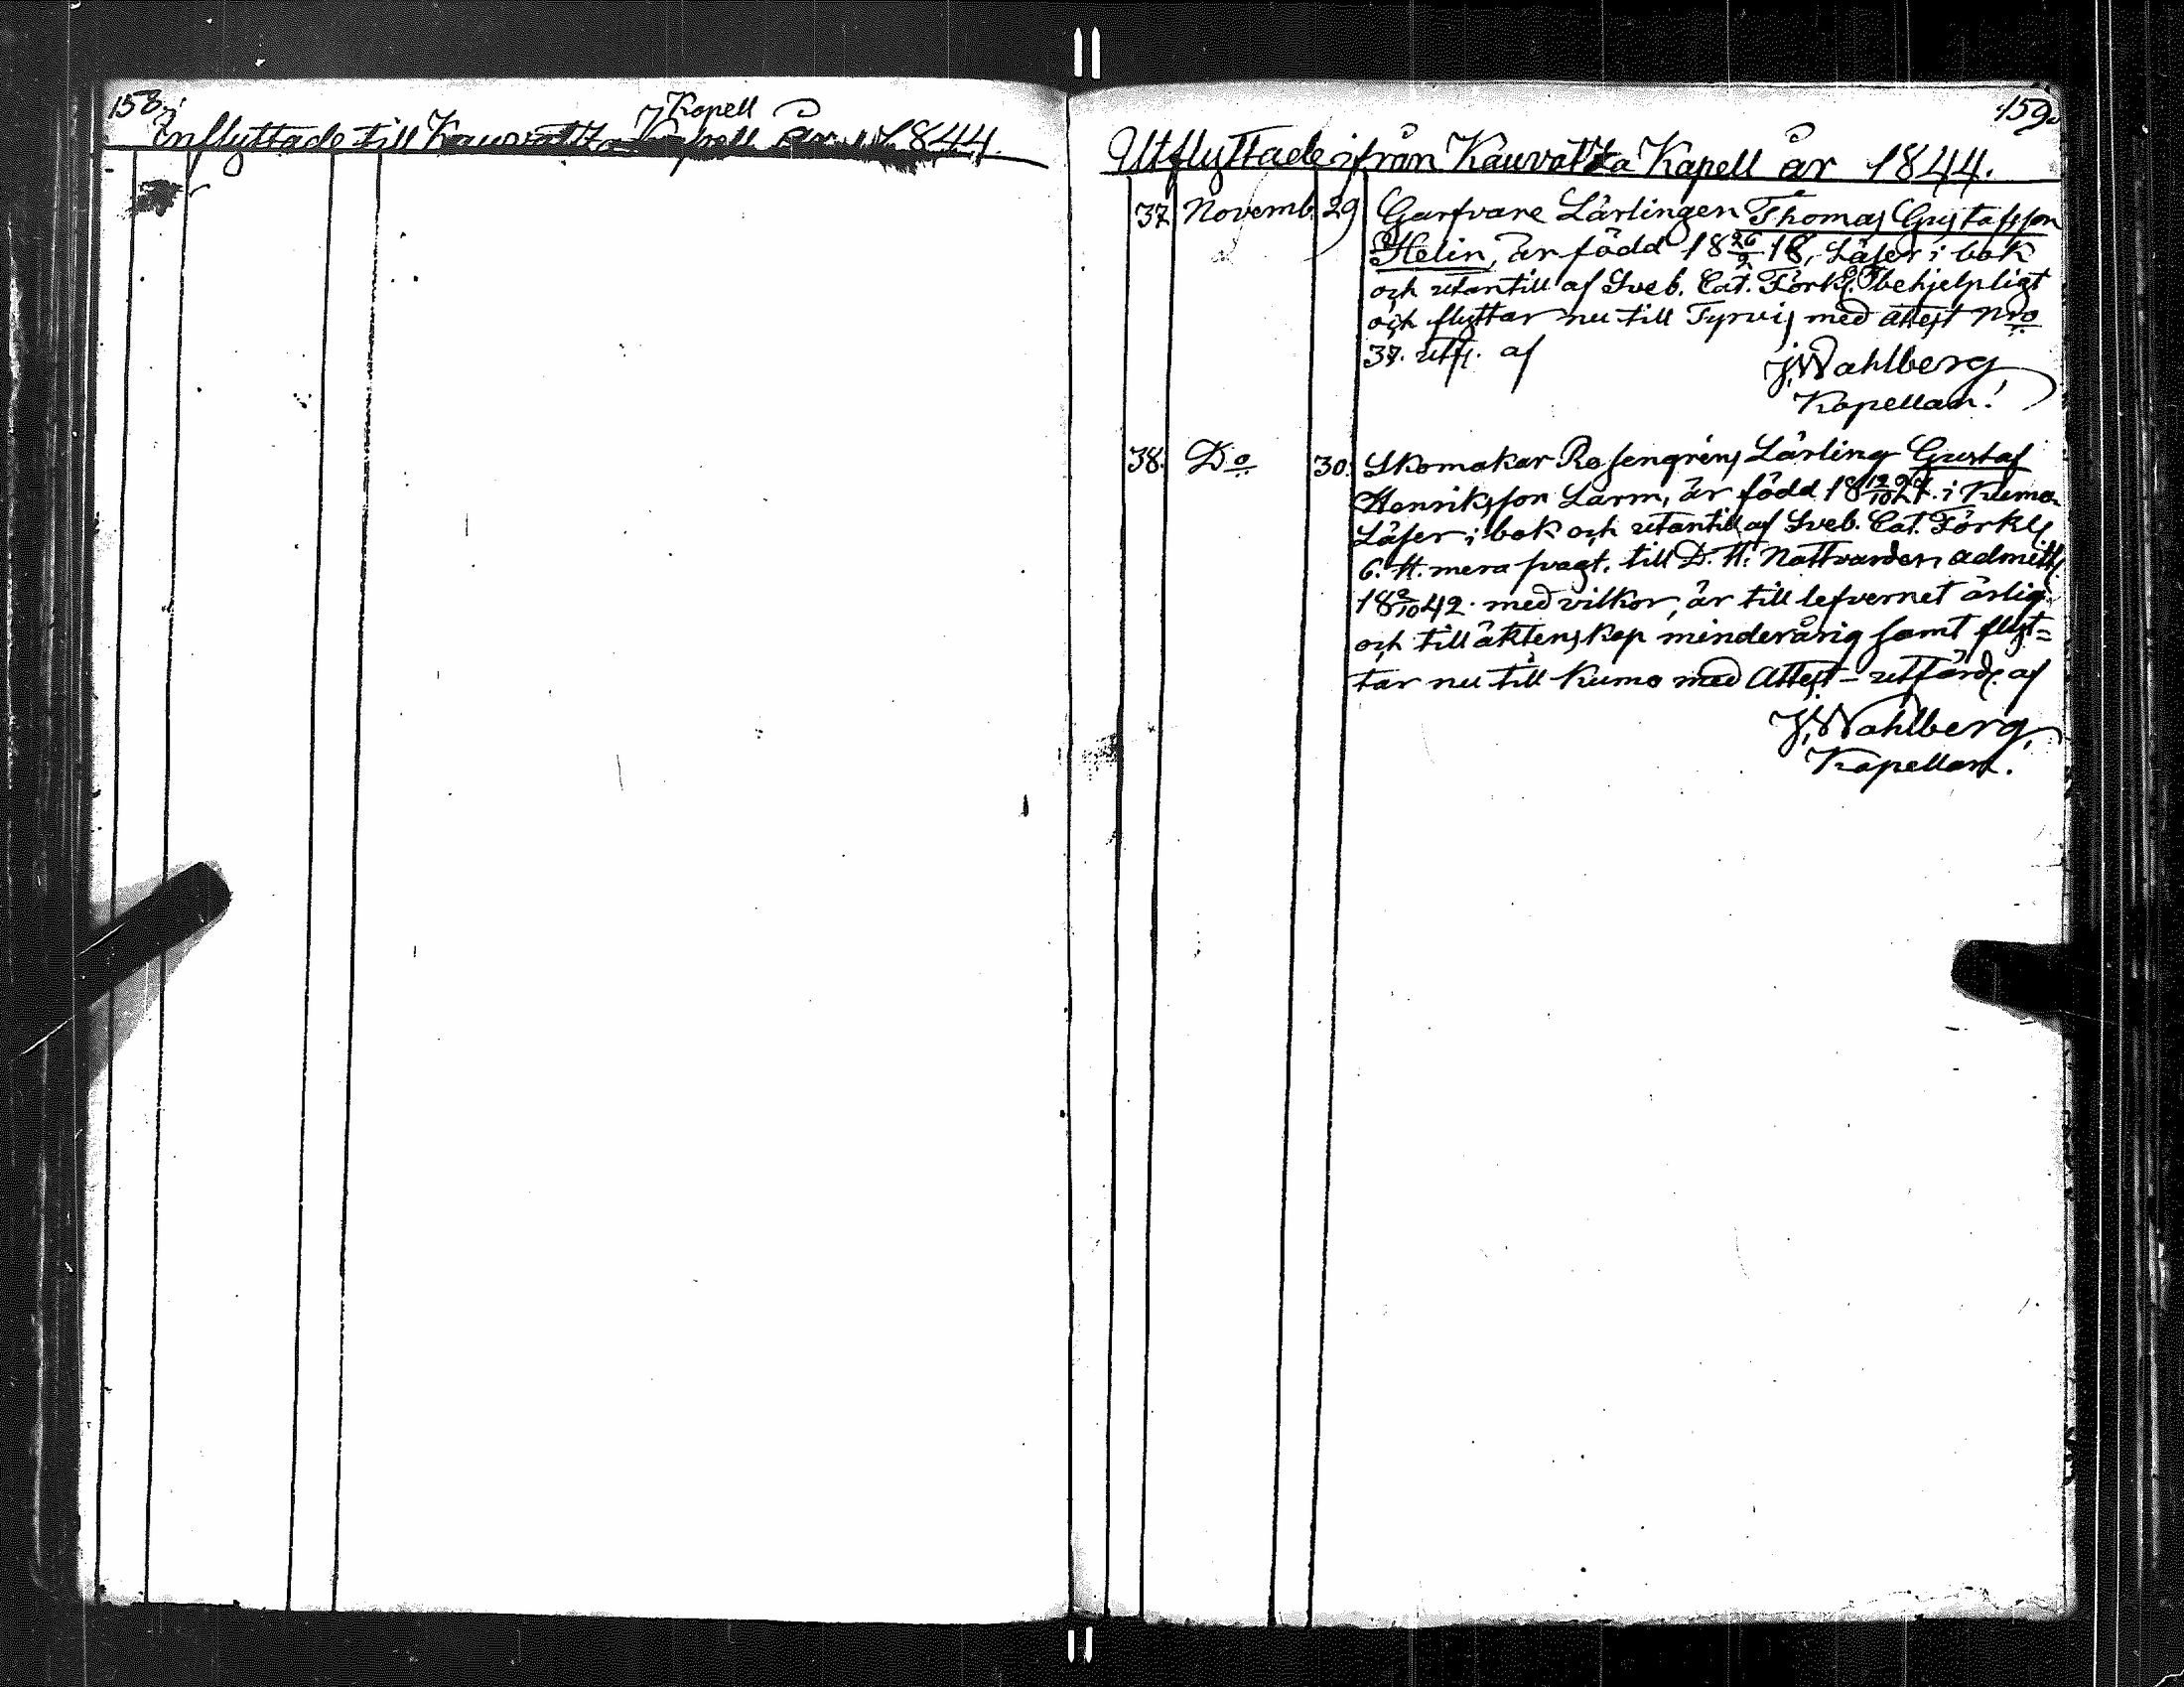 158.
Kapell
Inflyttade till Kauvattza Kapell år 1844.
159.
Utflyttade ifrån Kauvattza Kapell år 1844.
37. Novemb. 29 Garfvare Lärlingen Thomas Gustafsson
Helin, är född 18 26/2 18, Läser i bok
och utantill af Sveb. Cat. Förkl. behjelpligt
och flyttar nu till Tyrvis med attest Nro
37. utf. af
J. Wahlberg
Kapellan.
38. Do 30. Skomakar Rosengréns Lärling Gustaf
Henriksson Larm, är född 18 12/10 27. i Kumo.
Läser i bok och utantill af Sveb. Cat. Förkl.
6. H. mera svagt. till D. H. Nattvarden admitt.
18 2/10 42. med vilkor, är till lefvernet ärlig
och till äktenskap minderårig samt flyt=
tar nu till Kumo med Attest utfärd. af
J. Wahlberg,
Kapellan.